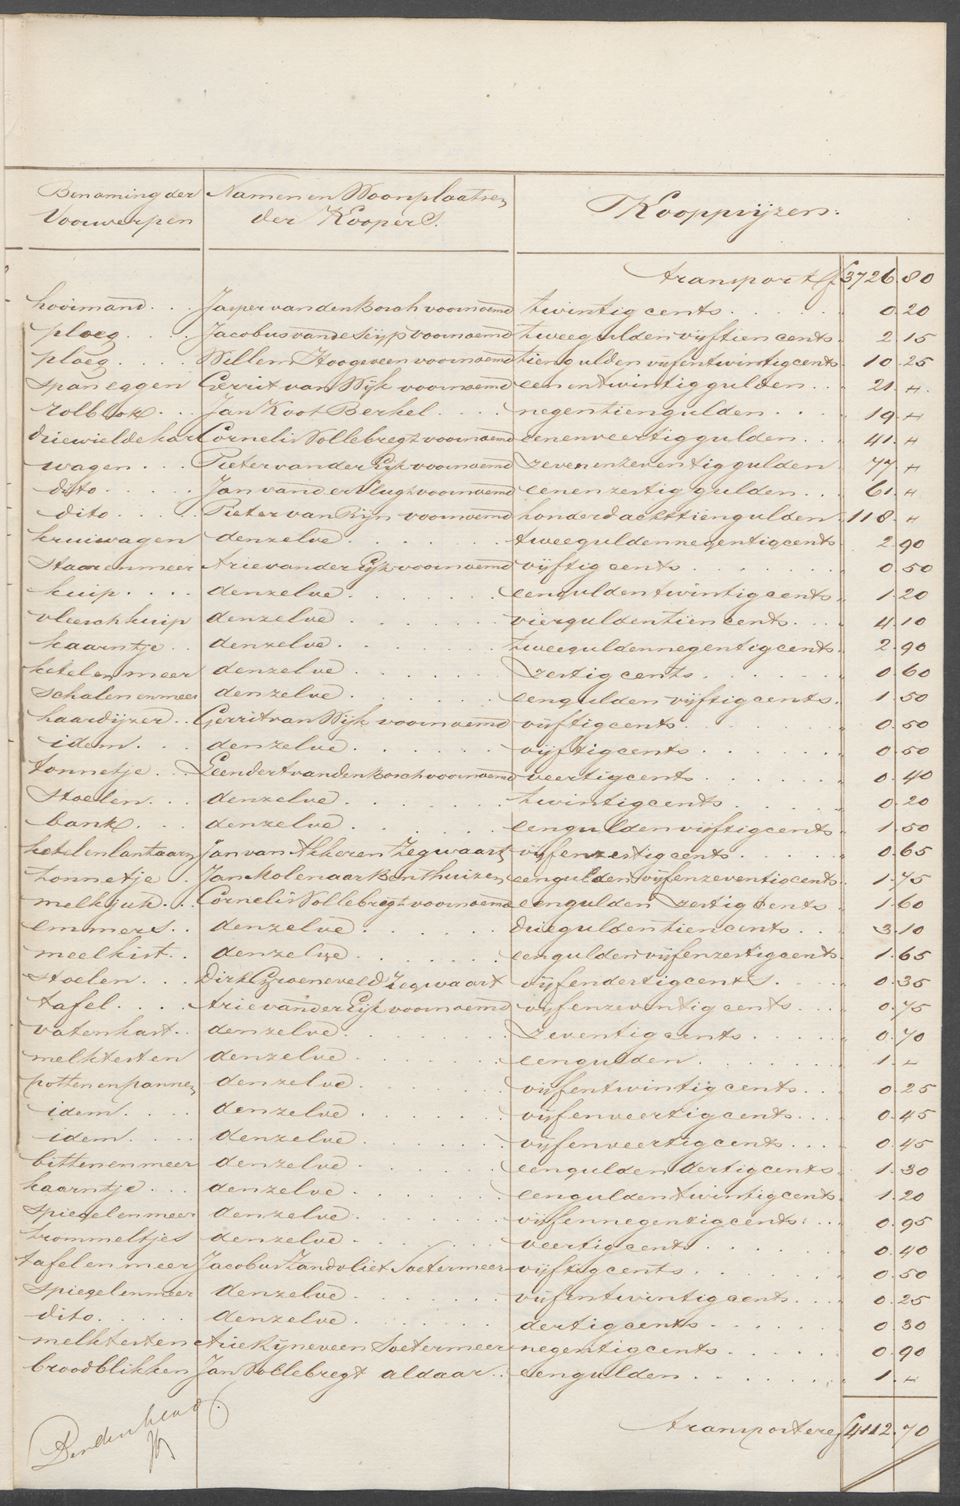 Benaming der Voorwerpen | Namen en Woonplaatsen der Koopers. | Koopprijzen.
transport f 3726.80
hooimand | Jasper van den Bosch voornoemd | twintig cents | 0.20
ploeg | Jacobus van de Sijp voornoemd | twee gulden vijftien cents | 2.15
ploeg | Willem Hoogeveen voornoemd | tien gulden vijfentwintig cents | 10.25
span eggen | Gerrit van Wijk voornoemd | een en twintig gulden | 21.„
rolblok | Jan Koot Berkel | negentien gulden | 19.„
driewielde kar | Cornelis Vollebregt voornoemd | een en veertig gulden | 41.„
wagen | Pieter van der Eijk voornoemd | zeven en zeventig gulden | 77.„
dito | Jan van der Vlugt voornoemd | een en zestig gulden | 61.„
dito | Pieter van Rijn voornoemd | honderd achttien gulden | 118.„
kruiwagen | denzelve | twee gulden negentig cents | 2.90
staar en meer | Arie van der Eijk voornoemd | vijftig cents | 0.50
kuip | denzelve | een gulden twintig cents | 1.20
vleeschkuip | denzelve | vier gulden tien cents | 4.10
kaarntje | denzelve | twee gulden negentig cents | 2.90
ketel en meer | denzelve | zestig cents | 0.60
schalen en meer | denzelve | een gulden vijftig cents | 1.50
haardijzer | Gerrit van Wijk voornoemd | vijftig cents | 0.50
idem | denzelve | vijftig cents | 0.50
tonnetje | Leendert van den Bosch voornoemd | veertig cents | 0.40
stoelen | denzelve | twintig cents | 0.20
bank | denzelve | een gulden vijftig cents | 1.50
ketel en lantaarn | Jan van Akkeren Zegwaart | vijf en zestig cents | 0.65
tonnetje | Jan Molenaar Benthuizen | een gulden vijfenzeventig cents | 1.75
melkjuk | Cornelis Vollebregt voornoemd | een gulden zestig cents | 1.60
emmers | denzelve | drie gulden tien cents | 3.10
meelkist | denzelve | een gulden vijfenzestig cents | 1.65
stoelen | Dirk Groeneveld Zegwaart | vijfendertig cents | 0.35
tafel | Arie van der Eijk voornoemd | vijfenzeventig cents | 0.75
vatenkast | denzelve | zeventig cents | 0.70
melktesten | denzelve | een gulden | 1.„
potten en pannen | denzelve | vijfentwintig cents | 0.25
idem | denzelve | vijfenveertig cents | 0.45
idem | denzelve | vijfenveertig cents | 0.45
bitten en meer | denzelve | een gulden dertig cents | 1.30
kaarntje | denzelve | een gulden twintig cents | 1.20
spiegel en meer | denzelve | vijfennegentig cents | 0.95
trommeltjes | denzelve | veertig cents | 0.40
tafel en meer | Jacobus Zandvliet Soetermeer | vijftig cents | 0.50
spiegel en meer | denzelve | vijfentwintig cents | 0.25
dito | denzelve | dertig cents | 0.30
melktesten | Arie Rijneveen Soetermeer | negentig cents | 0.90
broodblikken | Jan Vollebregt aldaar | een gulden | 1.„
transportere f 4112.70